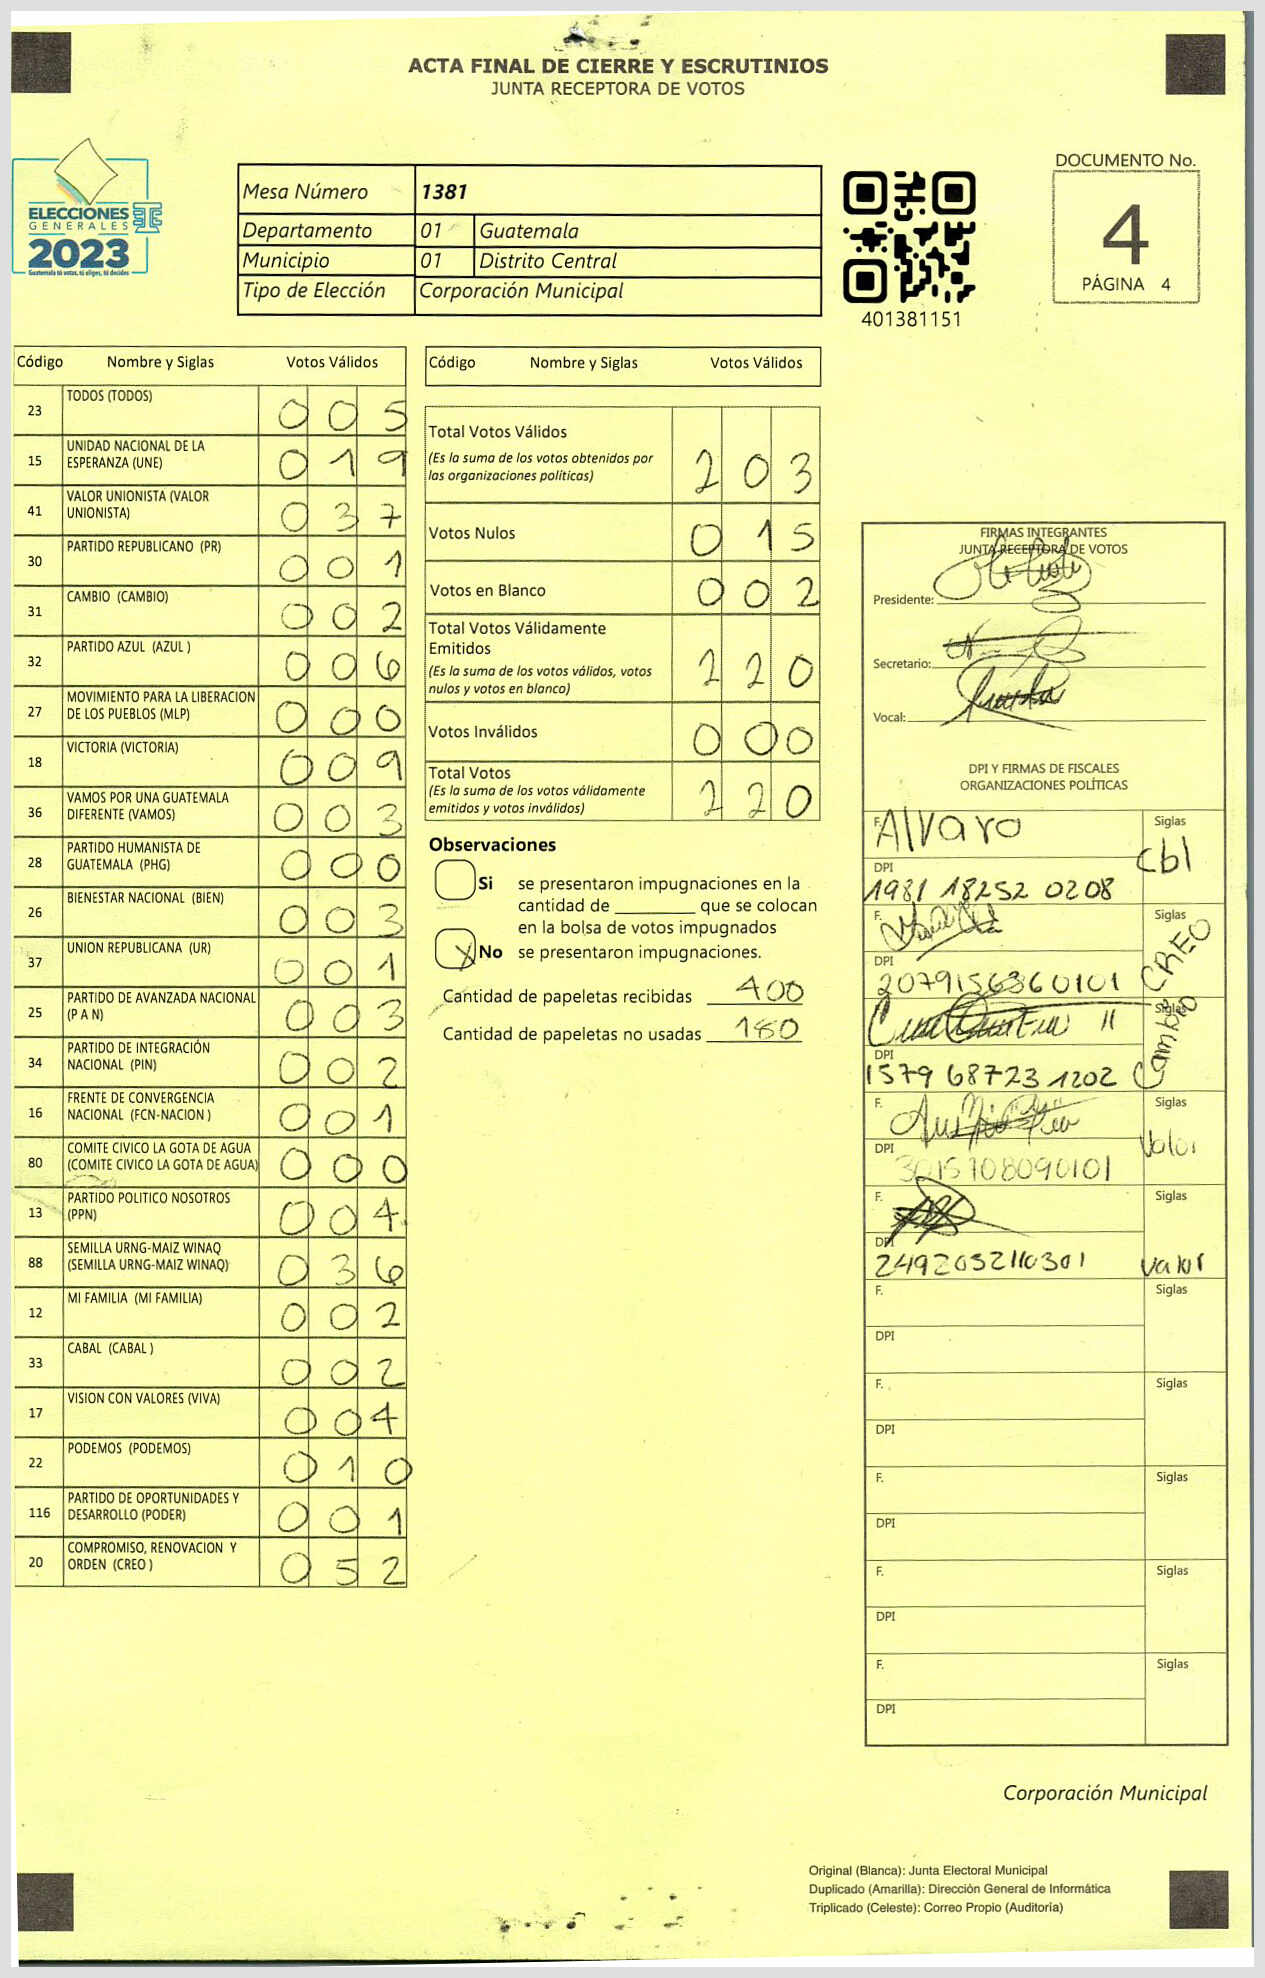 ACTA FINAL DE CIERRE Y ESCRUTINIOS
JUNTA RECEPTORA DE VOTOS
ELECCIONES
GENERALES
2023
Guatemala tú votas, tú eliges, tú decides
Mesa Número 1381
Departamento 01 Guatemala
Municipio 01 Distrito Central
Tipo de Elección Corporación Municipal
401381151
DOCUMENTO No.
4
PÁGINA 4
Código Nombre y Siglas Votos Válidos
23 TODOS (TODOS) 0 0 5
15 UNIDAD NACIONAL DE LA
ESPERANZA (UNE) 0 1 9
41 VALOR UNIONISTA (VALOR
UNIONISTA) 0 3 7
30 PARTIDO REPUBLICANO (PR) 0 0 1
31 CAMBIO (CAMBIO) 0 0 2
32 PARTIDO AZUL (AZUL ) 0 0 6
27 MOVIMIENTO PARA LA LIBERACION
DE LOS PUEBLOS (MLP) 0 0 0
18 VICTORIA (VICTORIA) 0 0 9
36 VAMOS POR UNA GUATEMALA
DIFERENTE (VAMOS) 0 0 3
28 PARTIDO HUMANISTA DE
GUATEMALA (PHG) 0 0 0
26 BIENESTAR NACIONAL (BIEN) 0 0 3
37 UNION REPUBLICANA (UR) 0 0 1
25 PARTIDO DE AVANZADA NACIONAL
(P A N) 0 0 3
34 PARTIDO DE INTEGRACIÓN
NACIONAL (PIN) 0 0 2
16 FRENTE DE CONVERGENCIA
NACIONAL (FCN-NACION ) 0 0 1
80 COMITE CIVICO LA GOTA DE AGUA
(COMITE CIVICO LA GOTA DE AGUA) 0 0 0
13 PARTIDO POLITICO NOSOTROS
(PPN) 0 0 4
88 SEMILLA URNG-MAIZ WINAQ
(SEMILLA URNG-MAIZ WINAQ) 0 3 6
12 MI FAMILIA (MI FAMILIA) 0 0 2
33 CABAL (CABAL ) 0 0 2
17 VISION CON VALORES (VIVA) 0 0 4
22 PODEMOS (PODEMOS) 0 1 0
116 PARTIDO DE OPORTUNIDADES Y
DESARROLLO (PODER) 0 0 1
20 COMPROMISO, RENOVACION Y
ORDEN (CREO ) 0 5 2
Código Nombre y Siglas Votos Válidos
Total Votos Válidos
(Es la suma de los votos obtenidos por
las organizaciones políticas) 2 0 3
Votos Nulos 0 1 5
Votos en Blanco 0 0 2
Total Votos Válidamente
Emitidos
(Es la suma de los votos válidos, votos
nulos y votos en blanco) 2 2 0
Votos Inválidos 0 0 0
Total Votos
(Es la suma de los votos válidamente
emitidos y votos inválidos) 2 2 0
Observaciones
Si se presentaron impugnaciones en la
cantidad de ________ que se colocan
en la bolsa de votos impugnados
X No se presentaron impugnaciones.
Cantidad de papeletas recibidas 400
Cantidad de papeletas no usadas 180
FIRMAS INTEGRANTES
JUNTA RECEPTORA DE VOTOS
Presidente:
Secretario:
Vocal:
DPI Y FIRMAS DE FISCALES
ORGANIZACIONES POLÍTICAS
F. Alvaro Siglas
cbl
DPI
1981 18252 0208
F. Siglas
CREO
DPI
2079156360101
Siglas
Cambio
DPI
1579 68723 1202
F. Siglas
Valor
DPI
3015708090101
F. Siglas
DPI
2492032110301 valor
F. Siglas
DPI
F. Siglas
DPI
F. Siglas
DPI
F. Siglas
DPI
F. Siglas
DPI
Corporación Municipal
Original (Blanca): Junta Electoral Municipal
Duplicado (Amarilla): Dirección General de Informática
Triplicado (Celeste): Correo Propio (Auditoría)